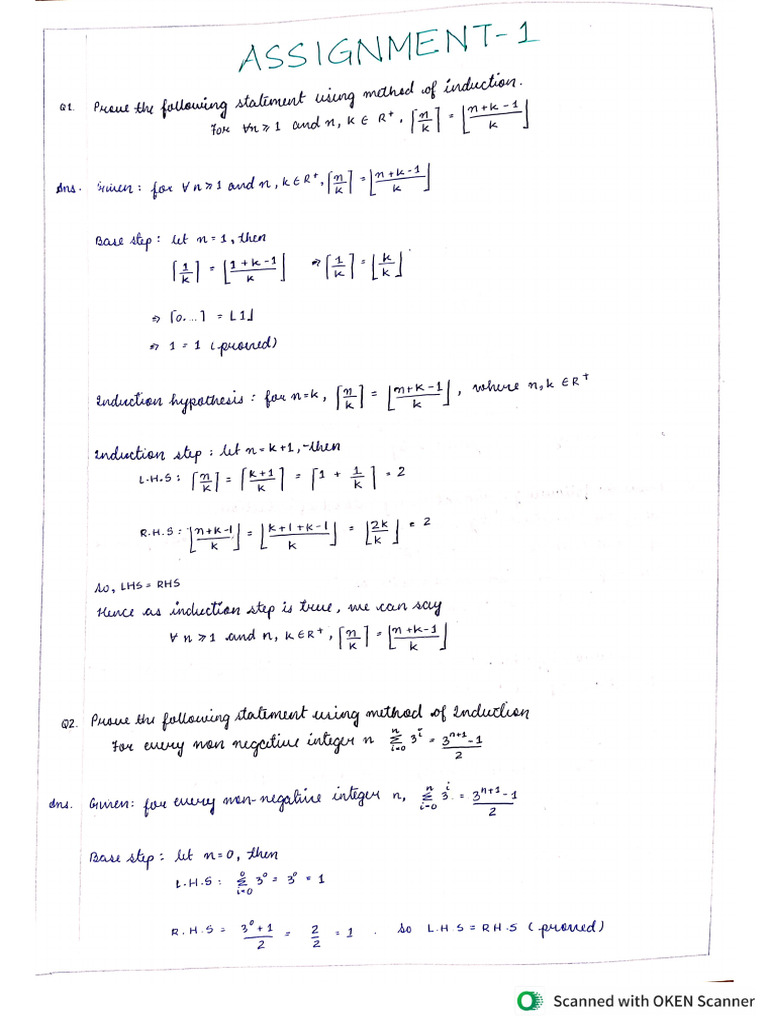 ASSIGNMENT-1
Q1. Prove the following statement using method of induction.
For ∀n≥1 and n, k ∈ R⁺, ⌈n/k⌉ = ⌊(n+k-1)/k⌋
Ans. Given: for ∀n≥1 and n, k∈R⁺, ⌈n/k⌉ = ⌊(n+k-1)/k⌋
Base step: let n=1, then
⌈1/k⌉ = ⌊(1+k-1)/k⌋ ⇒ ⌈1/k⌉ = ⌊k/k⌋
⇒ ⌈0....⌉ = ⌊1⌋
⇒ 1 = 1 (proved)
Induction hypothesis: for n=k, ⌈n/k⌉ = ⌊(n+k-1)/k⌋, where n,k ∈R⁺
Induction step: let n=k+1, then
L.H.S: ⌈n/k⌉ = ⌈(k+1)/k⌉ = ⌈1 + 1/k⌉ = 2
R.H.S: ⌊(n+k-1)/k⌋ = ⌊(k+1+k-1)/k⌋ = ⌊2k/k⌋ = 2
so, LHS = RHS
Hence as induction step is true, we can say
∀n≥1 and n, k∈R⁺, ⌈n/k⌉ = ⌊(n+k-1)/k⌋
Q2. Prove the following statement using method of Induction
For every non negative integer n ∑_{i=0}^{n} 3^i = (3^{n+1}-1)/2
Ans. Given: for every non-negative integer n, ∑_{i=0}^{n} 3^i = (3^{n+1}-1)/2
Base step: let n=0, then
L.H.S: ∑_{i=0}^{0} 3⁰ = 3⁰ = 1
R.H.S = (3⁰+1)/2 = 2/2 = 1 . so L.H.S = R.H.S (proved)
Scanned with OKEN Scanner